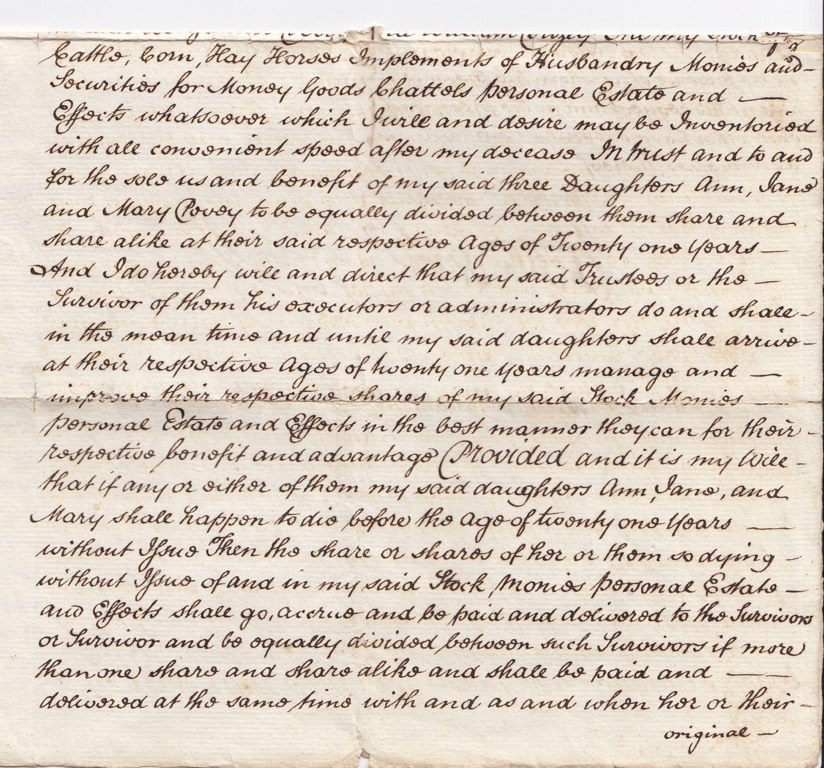 William Povey All my Stock of
Cattle, Corn, Hay Horses Implements of Husbandry Monies and
Securities for Money Goods Chattels personal Estate and —
Effects whatsoever which I will and desire may be Inventoried
with all convenient speed after my decease In trust and to and
for the sole us and benefit of my said three Daughters Ann, Jane
and Mary Povey to be equally divided between them share and
share alike at their said respective Ages of Twenty one years —
And I do hereby will and direct that my said Trustees or the —
Survivor of them his executors or administrators do and shall -
in the mean time and until my said daughters shall arrive -
at their respective Ages of twenty one years manage and —
improve their respective shares of my said Stock Monies —
personal Estate and Effects in the best manner they can for their -
respective benefit and advantage Provided and it is my Will -
that if any or either of them my said daughters Ann, Jane, and
Mary shall happen to die before the Age of twenty one years —
without Issue Then the share or shares of her or them so dying -
without Issue of and in my said Stock, Monies personal Estate -
and Effects shall go, accrue and be paid and delivered to the Survivors
or Survivor and be equally divided between such Survivors if more
than one share and share alike and shall be paid and — —
delivered at the same time with and as and when her or their -
original —